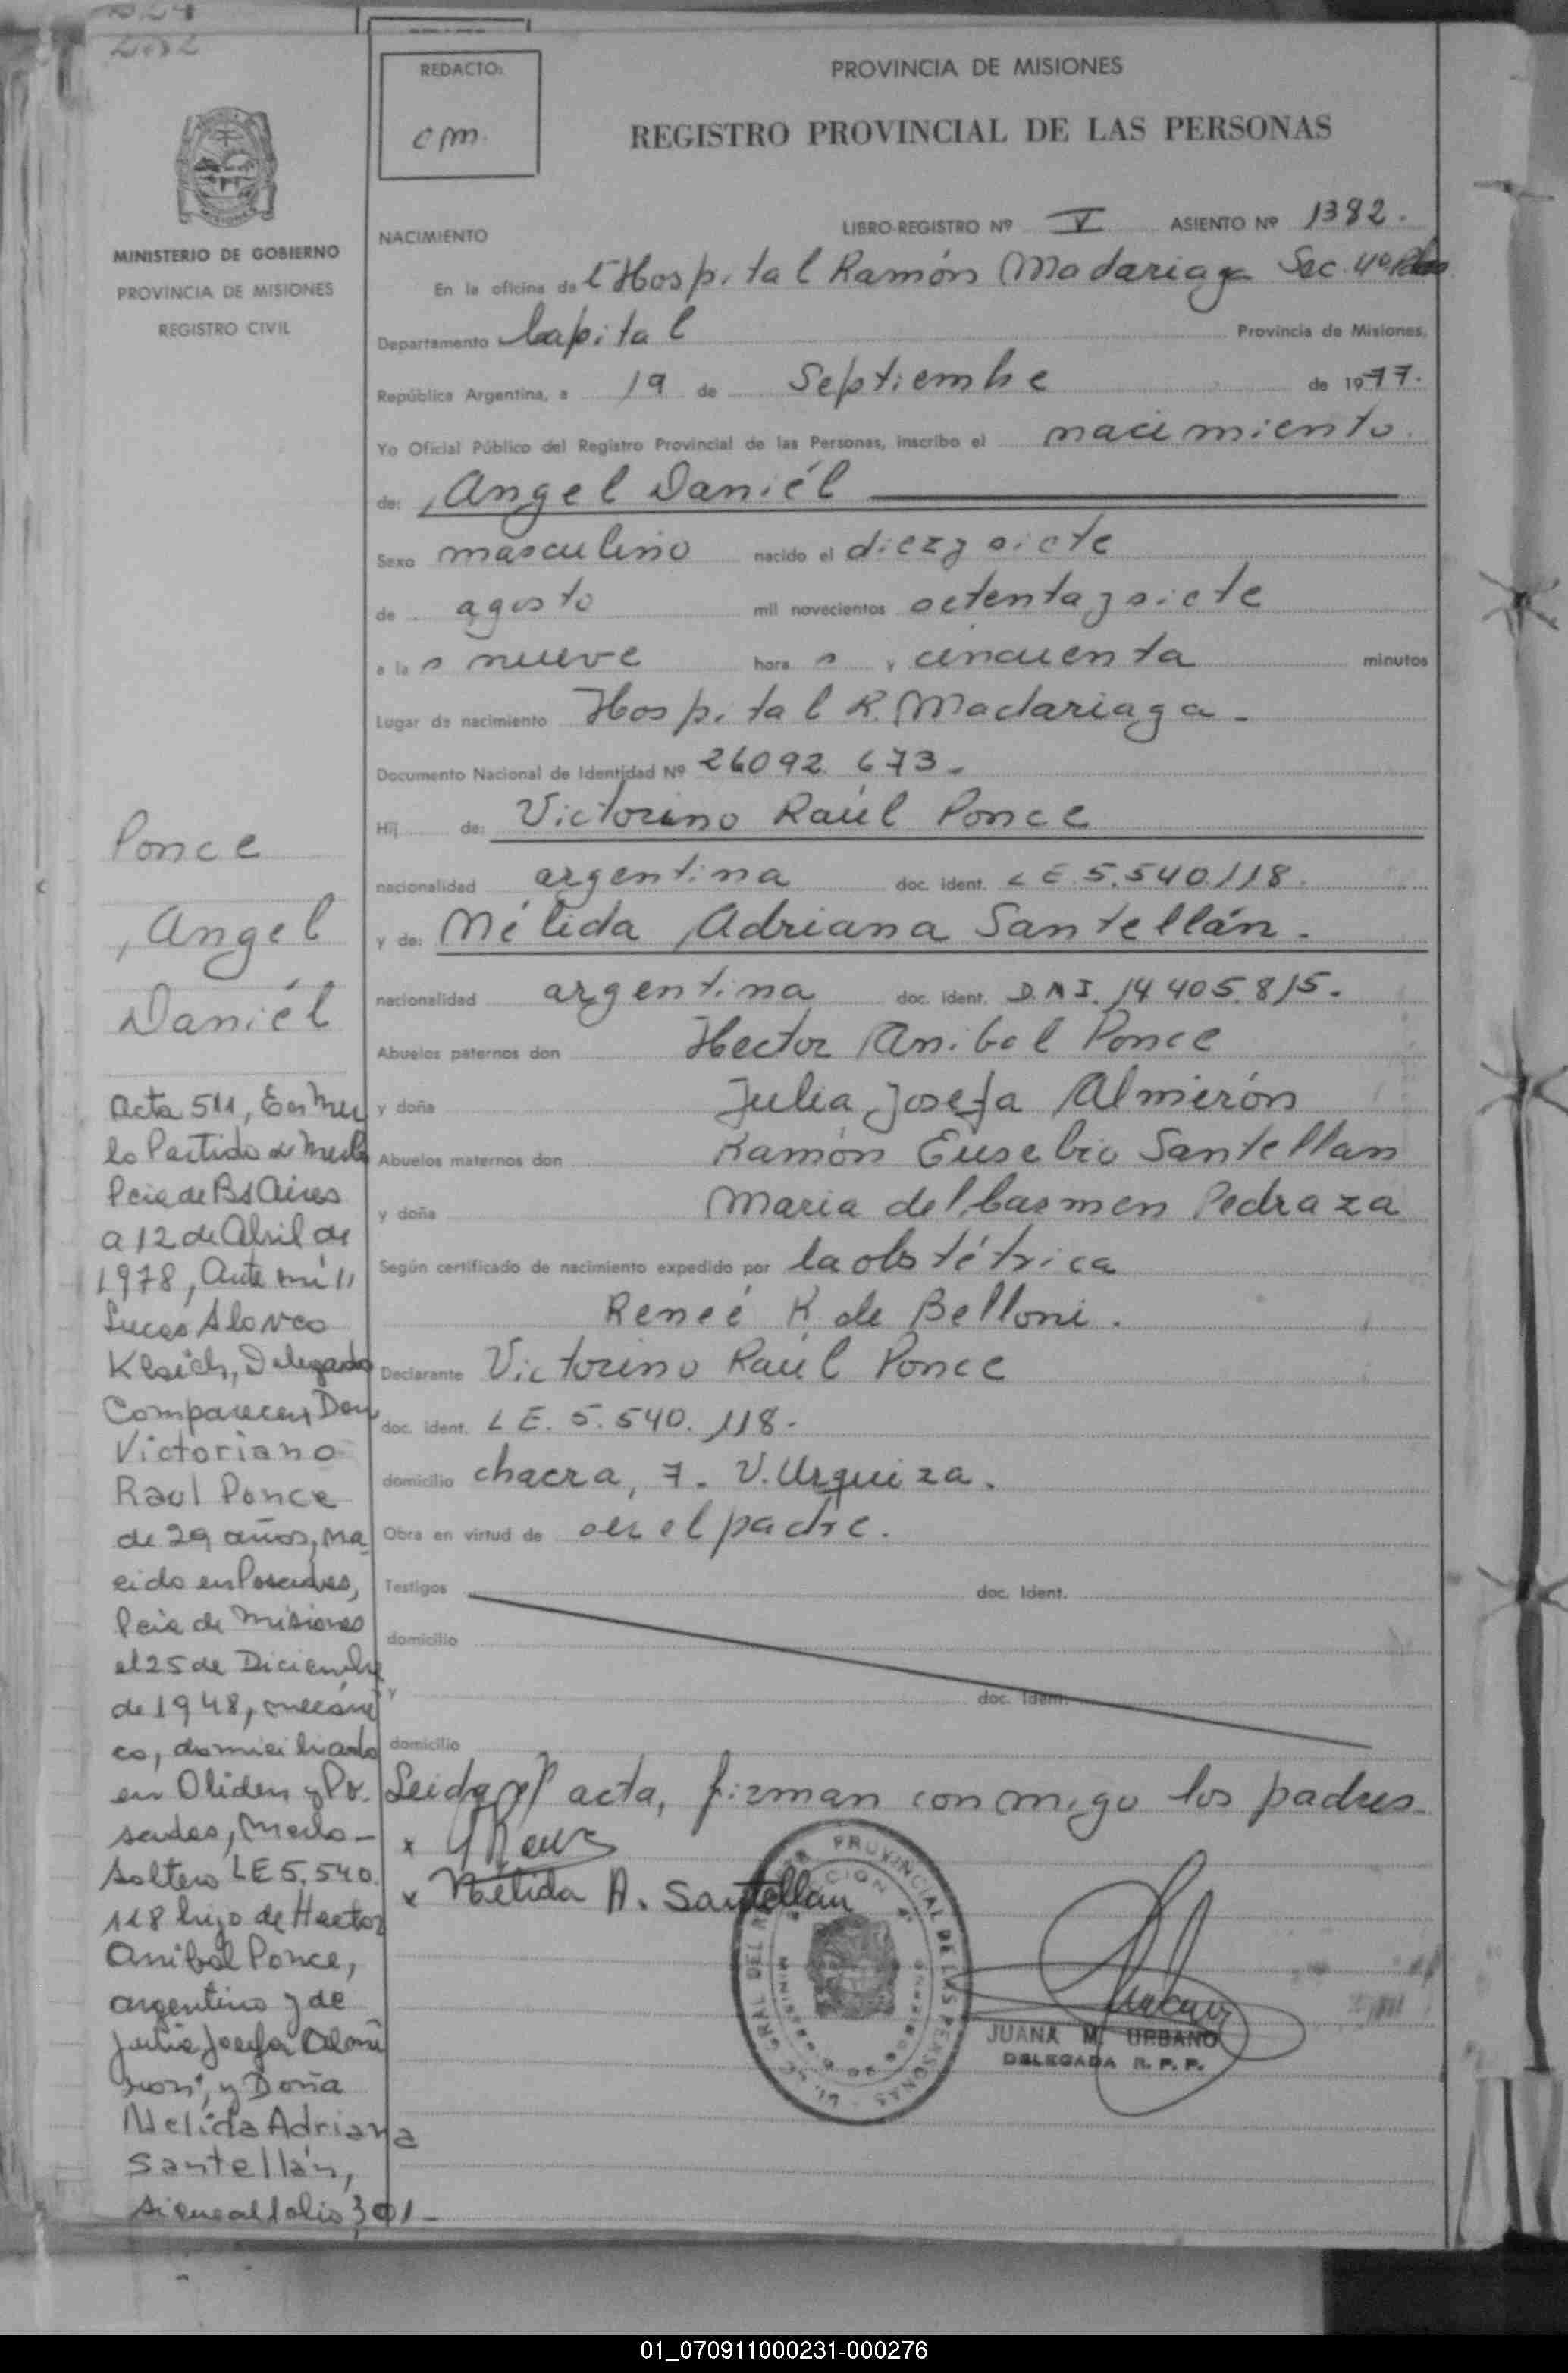 REDACTO:
cm.
PROVINCIA DE MISIONES
REGISTRO PROVINCIAL DE LAS PERSONAS
MINISTERIO DE GOBIERNO
PROVINCIA DE MISIONES
REGISTRO CIVIL
NACIMIENTO
LIBRO-REGISTRO Nº V ASIENTO Nº 1382.
En la oficina de l Hospital Ramón Madariaga Sec. 4º
Departamento Capital Provincia de Misiones,
República Argentina, a 19 de Septiembre de 1977.
Yo Oficial Público del Registro Provincial de las Personas, inscribo el nacimiento.
de: Angel Daniél
Sexo masculino nacido el diezysiete
de agosto mil novecientos setentaysiete
a la s nueve hora s y cincuenta minutos
Lugar de nacimiento Hospital R. Madariaga-
Documento Nacional de Identidad Nº 26092.673-
Hij de: Victorino Raúl Ponce
nacionalidad argentina doc. ident. LE.5.540.118.
y de: Nélida Adriana Santellán.
nacionalidad argentina doc. ident. D.N.I. 14.405.815.
Abuelos paternos don Hector Anibal Ponce
y doña Julia Josefa Almirón
Abuelos maternos don Ramón Eusebio Santellan
y doña Maria del Carmen Pedraza
Según certificado de nacimiento expedido por la obstétrica
Reneé K. de Belloni.
Declarante Victorino Raúl Ponce
doc. ident. LE. 5.540.118.
domicilio chacra, 7. V.Urquiza.
Obra en virtud de ser el padre.
Testigos doc. Ident.
domicilio
y doc. Ident.
domicilio
Leida el acta, firman conmigo los padres-
x
x Nélida A. Santellan
JUANA M. URBANO
DELEGADA R. P. P.
Ponce
Angel
Daniél
Acta 511, En Mer
lo Partido de Merlo
Pcia de Bs Aires
a 12 de Abril de
1978, Ante mi
Lucas Alonco
Delegado
Comparecen Don
Victoriano
Raul Ponce
de 29 años, na
cido en Posadas,
Pcia de Misiones
el 25 de Diciembre
de 1948, mecáni
co, domiciliado
en Oliden y Po.
sadas, Merlo-
soltero LE 5.540.
118 hijo de Hector
Anibal Ponce,
argentino y de
Julia Josefa Almi
ron, y Doña
Nelida Adriana
Santellán,
sigue al folio 301-
01_070911000231-000276